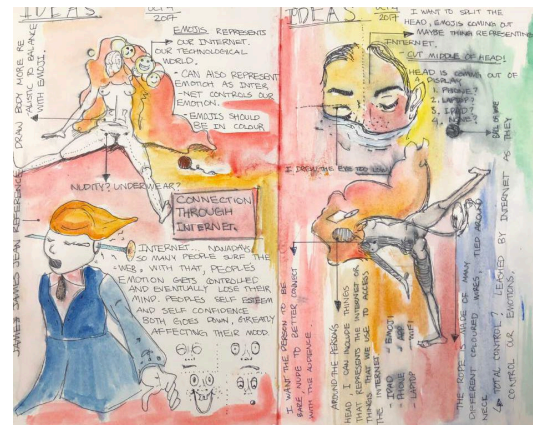 IDEAS
OCT 4
2017
EMOJIS REPRESENTS
OUR INTERNET.
OUR TECHNOLOGICAL
WORLD.
- CAN ALSO REPRESENT
EMOTION AS INTER
-NET CONTROLS OUR
EMOTION.
- EMOJIS SHOULD
BE IN COLOUR
DRAW BODY MORE RE
ALISTIC TO BALANCE
WITH EMOJI.
NUDITY? UNDERWEAR?
CONNECTION
THROUGH
INTERNET.
JAMES JEAN REFERENCE
INTERNET... NOWADAYS,
SO MANY PEOPLE SURF THE
WEB. WITH THAT, PEOPLES
EMOTION GETS CONTROLLED
AND EVENTUALLY LOSE THEIR
MIND. PEOPLES SELF ESTEEM
AND SELF CONFIDENCE
BOTH GOES DOWN, GREATLY
AFFECTING THEIR MOOD.
IDEAS
2017
I WANT TO SPLIT THE
HEAD, EMOJIS COMING OUT
MAYBE THING REPRESENTING
INTERNET.
- CUT MIDDLE OF HEAD!
HEAD IS COMING OUT OF
A DISPLAY
1. PHONE?
2. LAPTOP?
3. IPAD?
I DREW THE EYE TOO LOW
I WANT THE PERSON TO BE
BARE, NUDE TO BETTER CONNECT
WITH THE AUDIENCE.
AROUND THE PERSONS
HEAD, I CAN INCLUDE THINGS
THAT REPRESENTS THE INTERNET OR
THINGS THAT WE USE TO ACCESS
THE INTERNET
- IPAD
- PHONE
- LAPTOP
- EMOJI
- APP
- WIFI
THE ROPE IS MADE OF MANY
DIFFERENT COLOURED WIRES, TIED AROUND
NECK
TOTAL CONTROL? LEARNED BY INTERNET AS THEY
CONTROL OUR EMOTIONS,